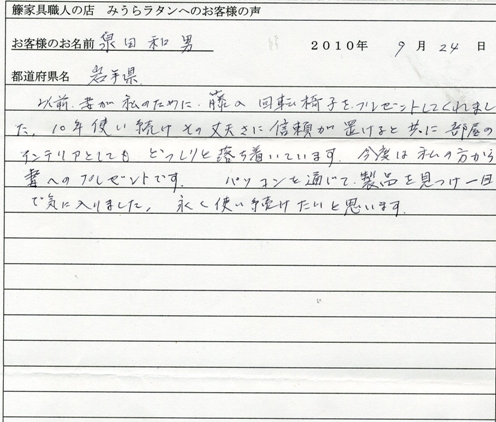 籐家具職人の店 みうらラタンへのお客様の声
お客様のお名前 泉田和男 2010年 9月 24日
都道府県名 岩手県
以前、妻が私のために、藤の回転椅子をプレゼントしてくれまし
た。10年使い続けその丈夫さに信頼が置けると共に部屋の
インテリアとしても どっしりと落ち着いています。今度は私の方から
妻へのプレゼントです。 パソコンを通じて、製品を見つけ一回
で気に入りました。 永く使い続けたいと思います。